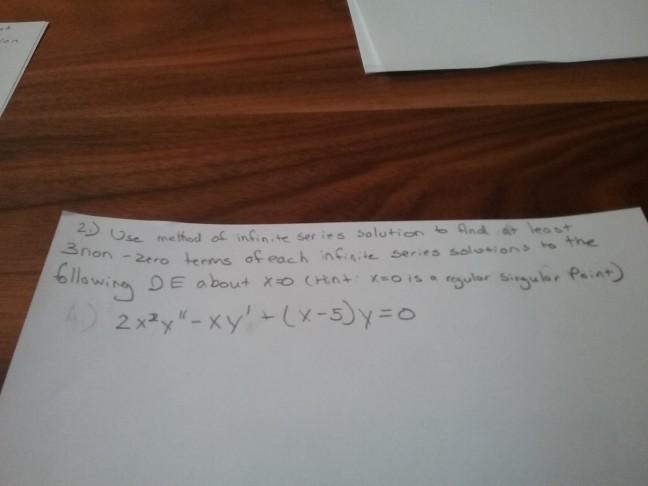 2.) Use method of infinite series solution to find at least
3 non-zero terms of each infinite series solutions to the
following DE about x=0 (Hint: x=0 is a regular singular Point)
A) 2x²y" - xy' + (x-5)y = 0